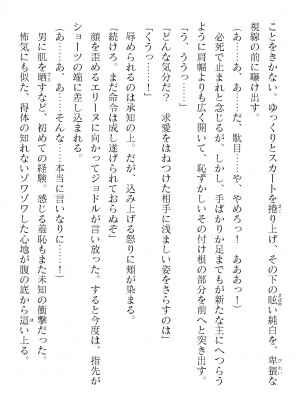 ことをきかない。ゆっくりとスカートを捲り上げ、その下の眩い純白を、卑猥な
視線の前に曝け出す。
(あ……あ、あ……だ、駄目……や、やめろっ！　あああっ！)
必死で止まれと念じるが、しかし、手ばかりか足までもが新たな主にへつらう
ように肩幅よりも広く開いて、恥ずかしいその付け根の部分を前へと突き出す。
(う、ううっ……)
「どんな気分だ？　求愛をはねつけた相手に浅ましい姿をさらすのは」
「くうっ……！」
辱められるのは承知の上。だが、込み上げる怒りに頬が染まる。
「続けろ。まだ命令は成し遂げられておらぬぞ」
顔を歪めるエリーヌに向かってジョドルが言い放った。すると今度は、指先が
ショーツの端に差し込まれる。
(あ……あ、あ……そんな……本当に言いなりに……！)
男に肌を晒すなど、初めての経験。感じる羞恥もまた未知の衝撃だった。
怖気にも似た、得体の知れないゾワゾワした心地が腹の底から這い上る。